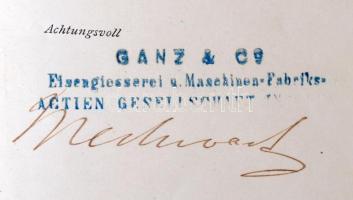 Achtungsvoll
GANZ & Co
Eisengiesserei u. Maschinen-Fabriks-
ACTIEN GESELLSCHAFT
Mechwart